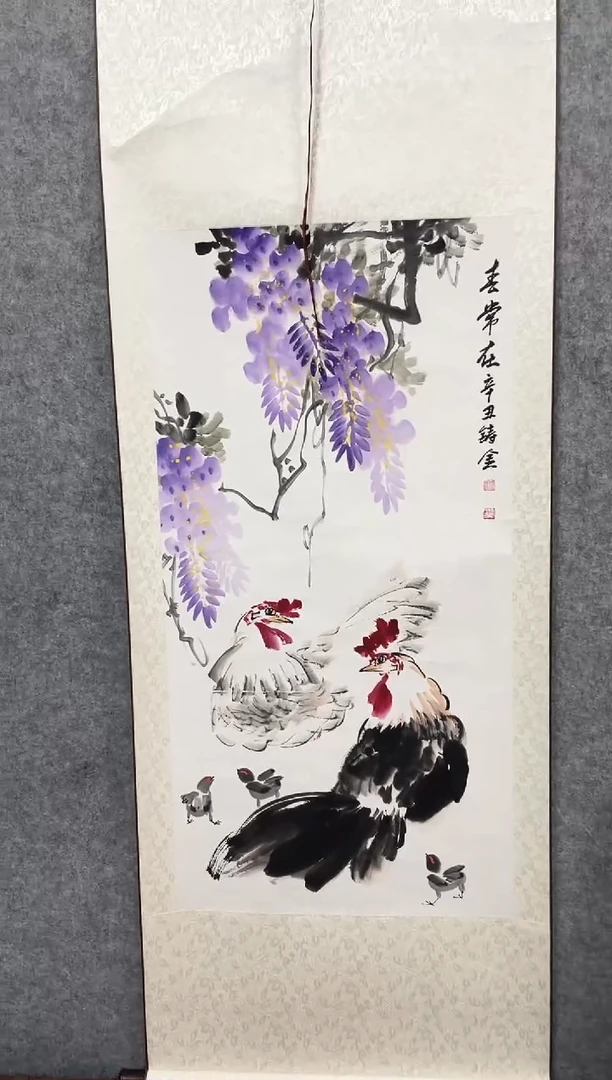 春常在辛丑铸金